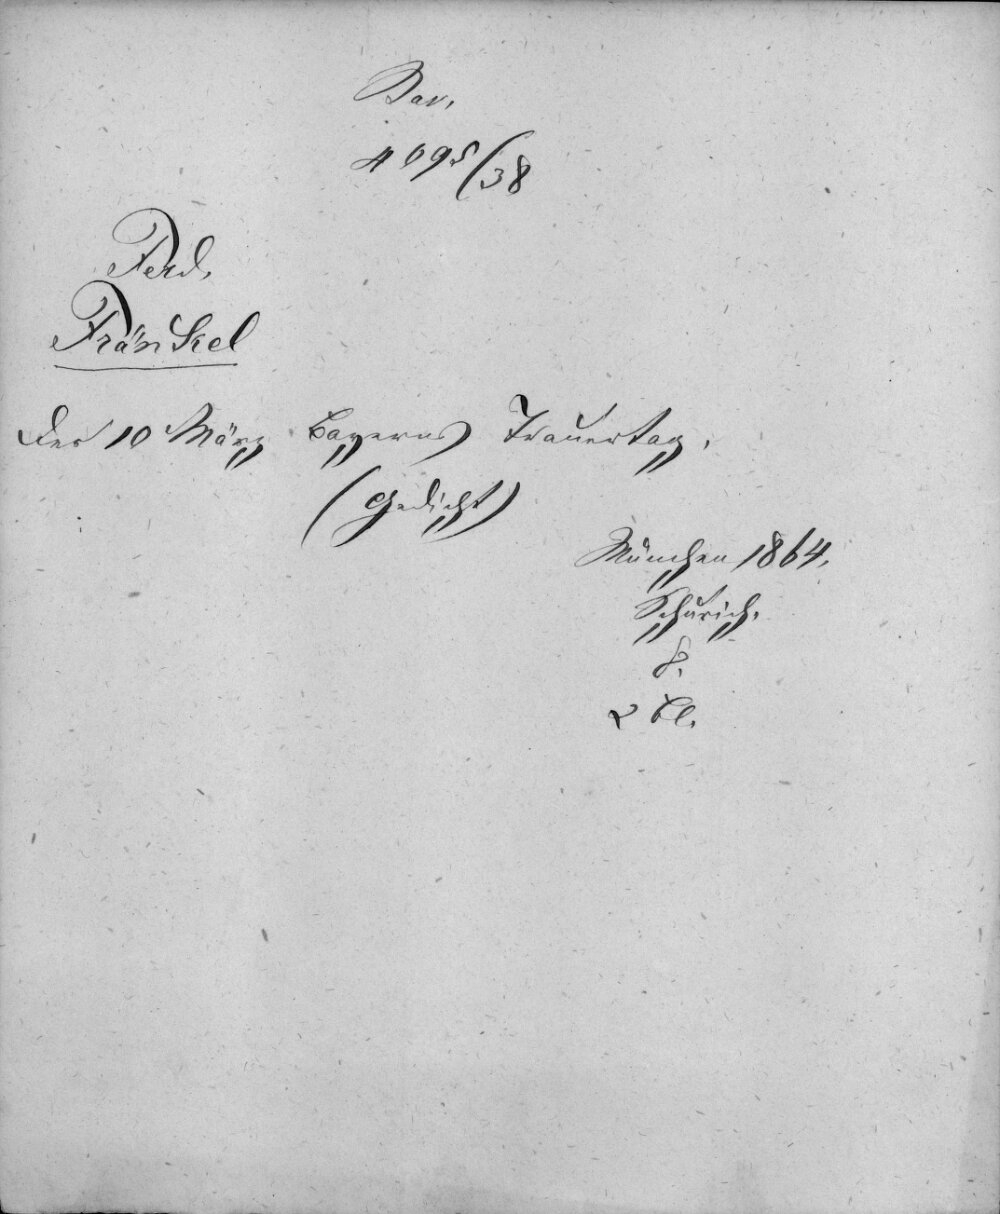 Bav.
4095/38
Ferd.
Fränkel
Der 10 März Bayerns Trauertag.
(Gedicht)
München 1864.
Schurich.
8.
2 Bl.